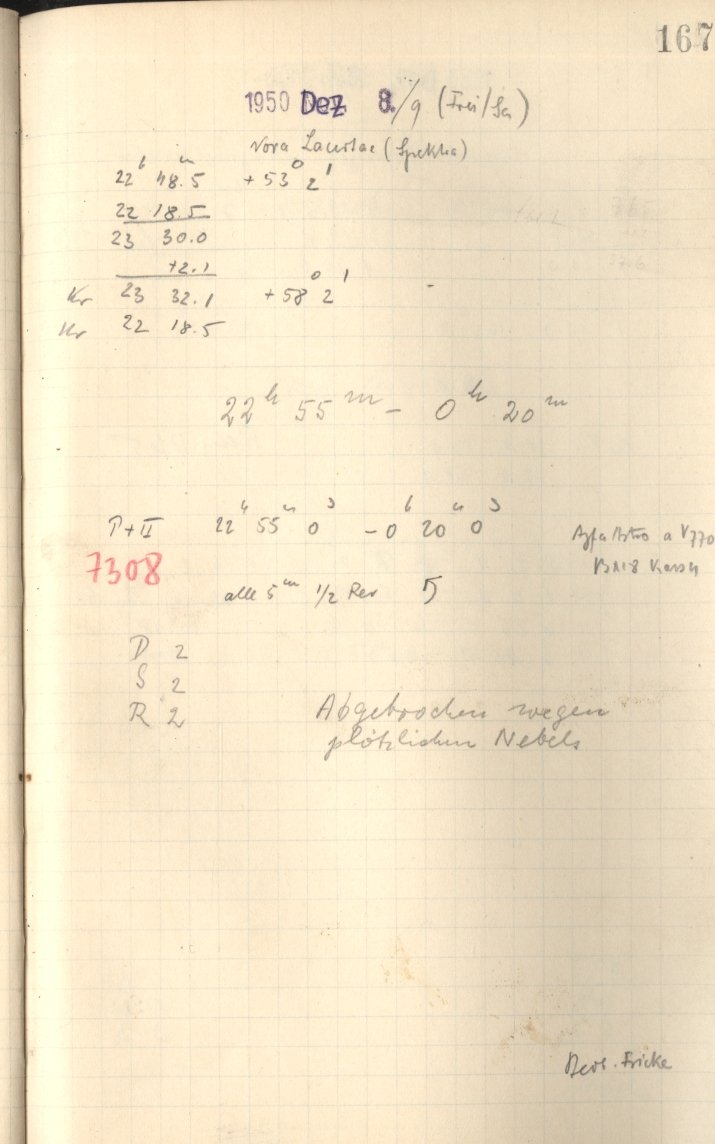 167
1950 Dez 8./9 (Frei/Sa)
Nova Lacertae (Spektra)
22h 48.5m +53° 2'
22 18.5
23 30.0
+2.1
23 32.1 +58° 2'
22 18.5
22h 55m - 0h 20m
P+II 22h 55m 0s - 0h 20m 0s
Agfa Astro
7308
alle 5m 1/2 Rev 5
D 2
S 2
R 2
Abgebrochen wegen
plötzlichen Nebels
Beob. Fricke